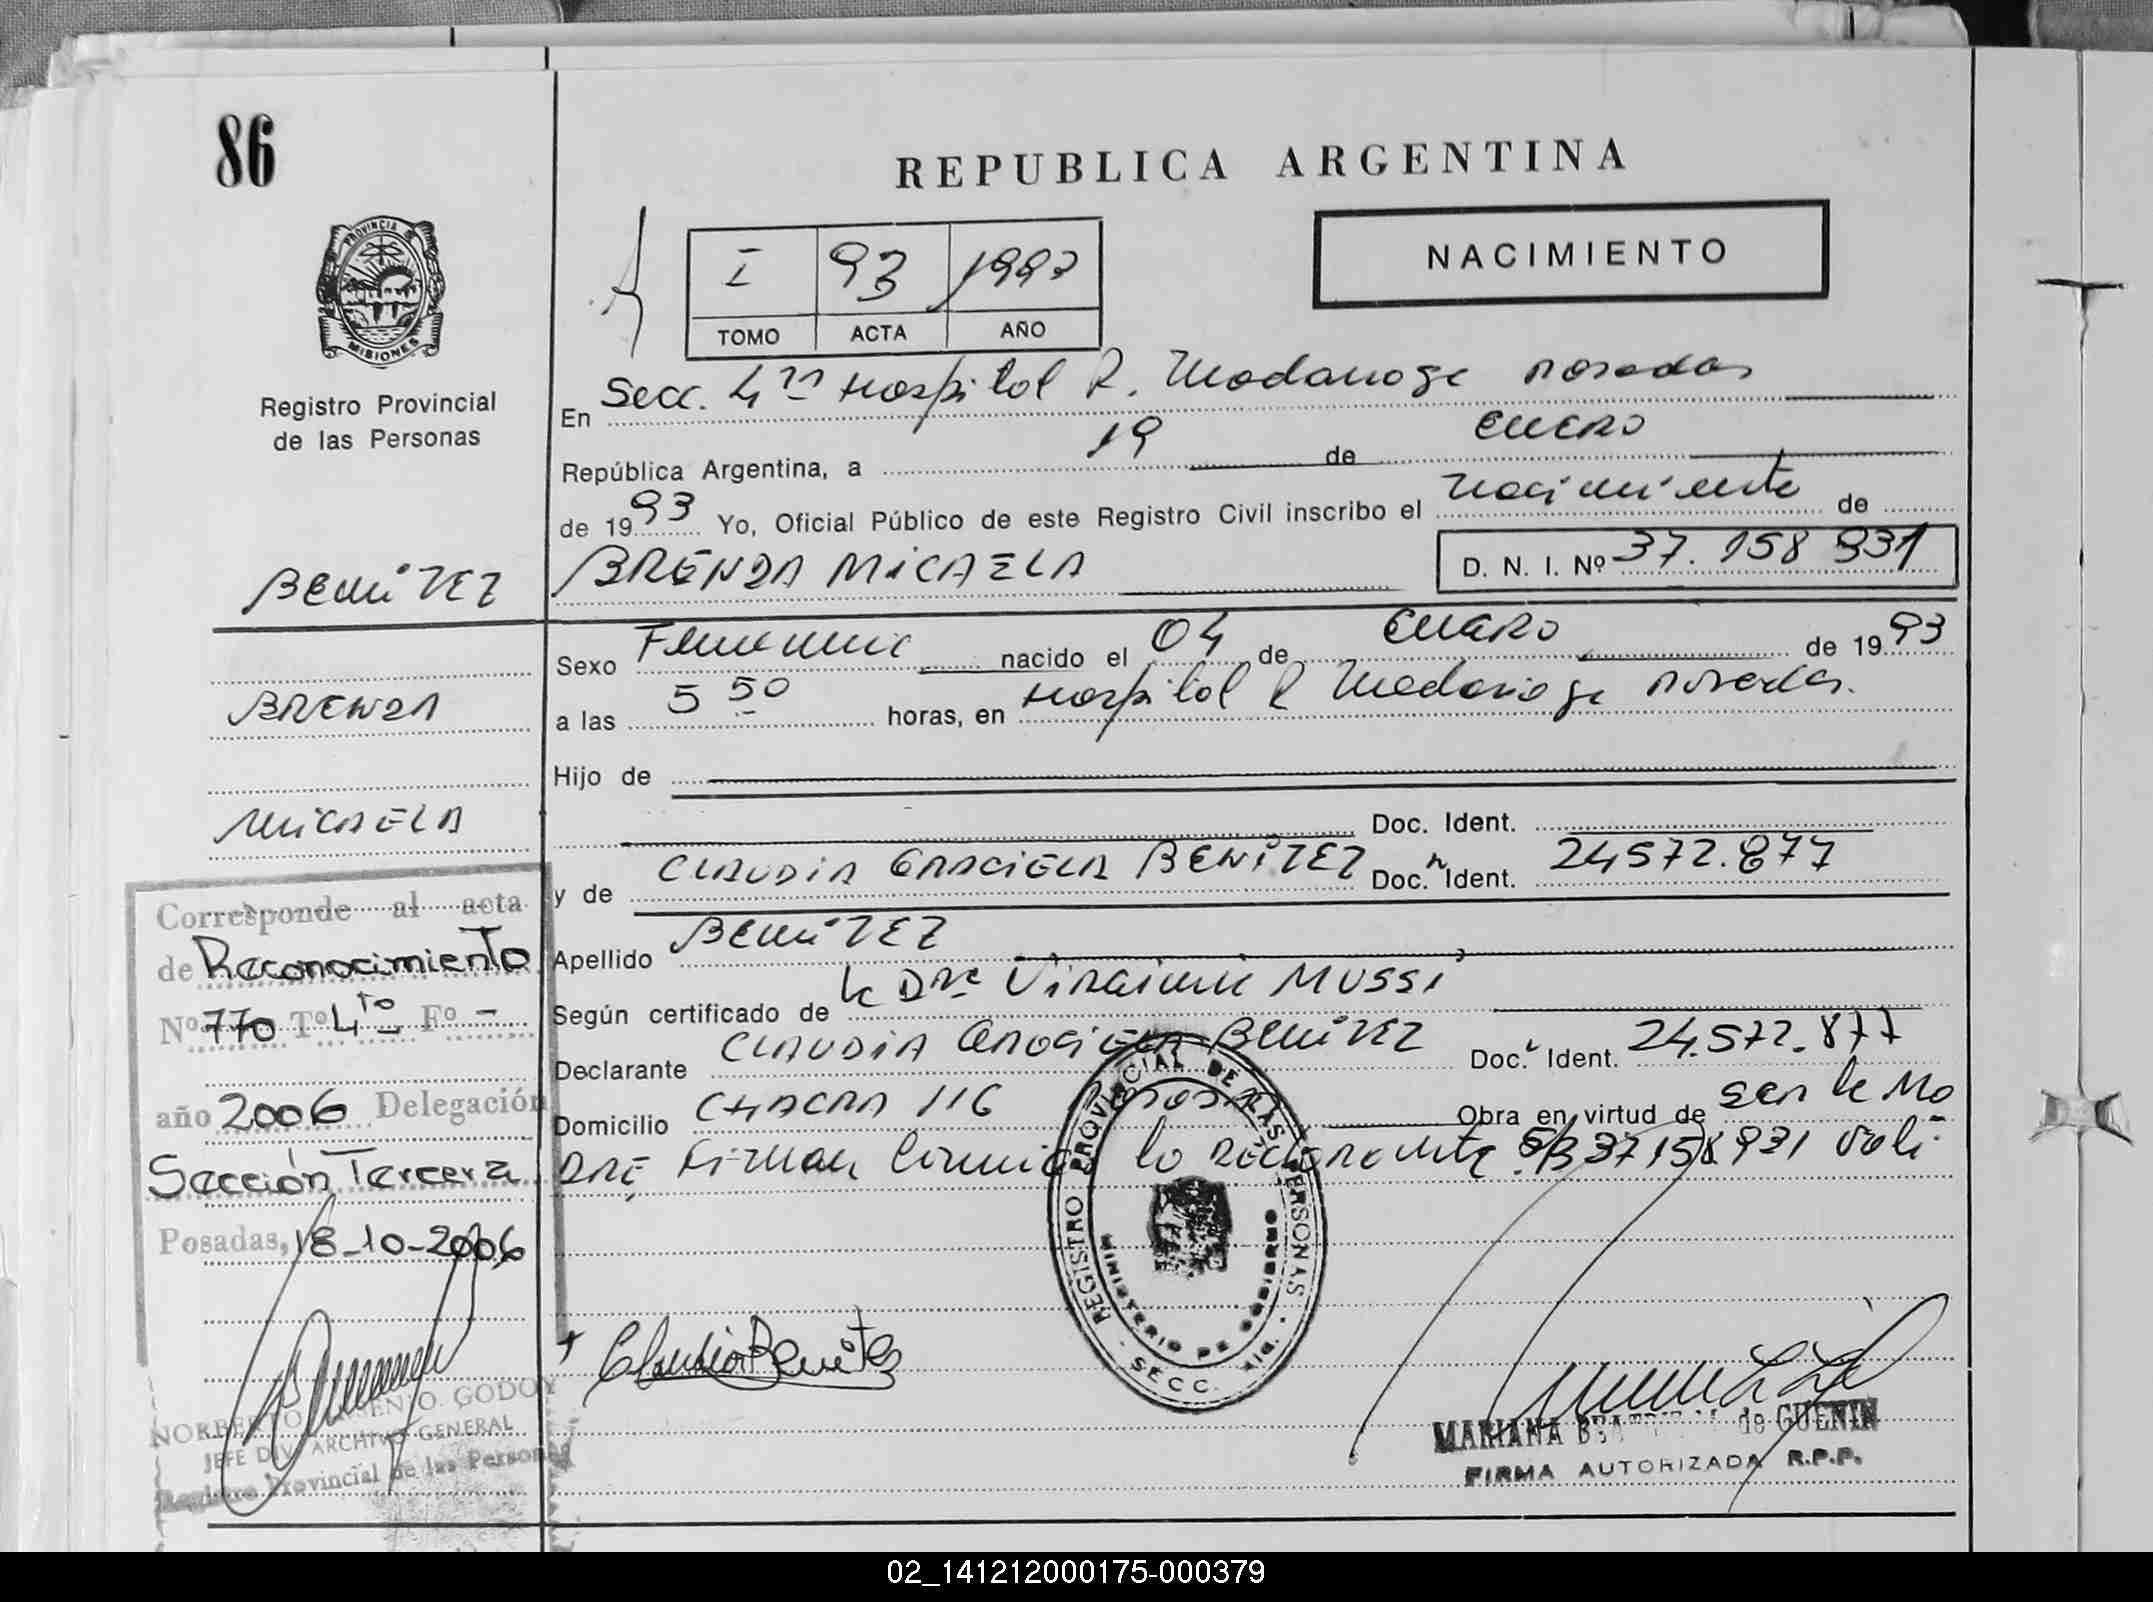 86
REPUBLICA ARGENTINA
NACIMIENTO
I 93 1993
TOMO ACTA AÑO
PROVINCIA DE
MISIONES
Registro Provincial
de las Personas
En Secc. 4ta Hospital R. Madariaga Posadas
República Argentina, a 19 de Enero
de 1993 Yo, Oficial Público de este Registro Civil inscribo el nacimiento de
BENITEZ BRENDA MICAELA D. N. I. Nº 37.158 931
Sexo Femenino nacido el 04 de Enero de 1993
BRENDA
a las 5 50 horas, en Hospital R Madariaga Posadas.
Hijo de
MICAELA
Doc. Ident.
y de CLAUDIA GRACIELA BENITEZ Doc. Ident. 24572.877
Apellido BENITEZ
Según certificado de la Dra Virginia MUSSI
Declarante CLAUDIA GRACIELA BENITEZ Doc. Ident. 24.572.877
Domicilio CHACRA 116 Posadas Obra en virtud de ser la Ma
DRE Firman conmigo la declarante 37158.931 Vali-
Corresponde al acta
de Reconocimiento
Nº 770 Tº 4to Fº -
año 2006 Delegación
Sección Tercera
Posadas, 18-10-2006
NORBERTO GODOY
JEFE DIV. ARCHIVO GENERAL
Registro Provincial de las Personas
Claudia Benitez
REGISTRO PROVINCIAL DE LAS PERSONAS
MINISTERIO DE GOBIERNO
SECC. 4ta.
MARIANA de GUENIN
FIRMA AUTORIZADA R.P.P.
02_141212000175-000379